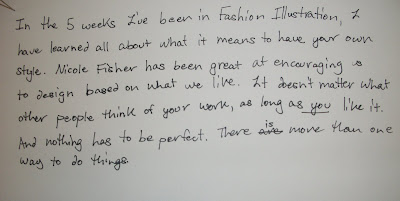 In the 5 weeks I've been in Fashion Illustration, I
have learned all about what it means to have your own
style. Nicole Fisher has been great at encouraging
to design based on what we like. It doesn't matter what
other people think of your work, as long as you like it.
And nothing has to be perfect. There is more than one
way to do things.